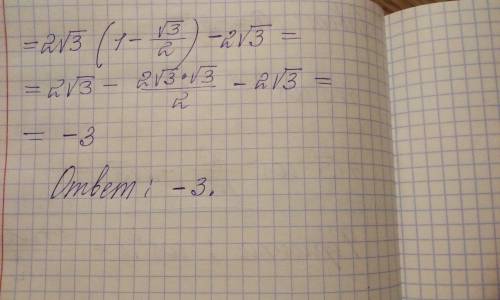 = 2√3 (1 - √3/2) - 2√3 =
= 2√3 - 2√3·√3/2 - 2√3 =
= -3
Ответ: -3.